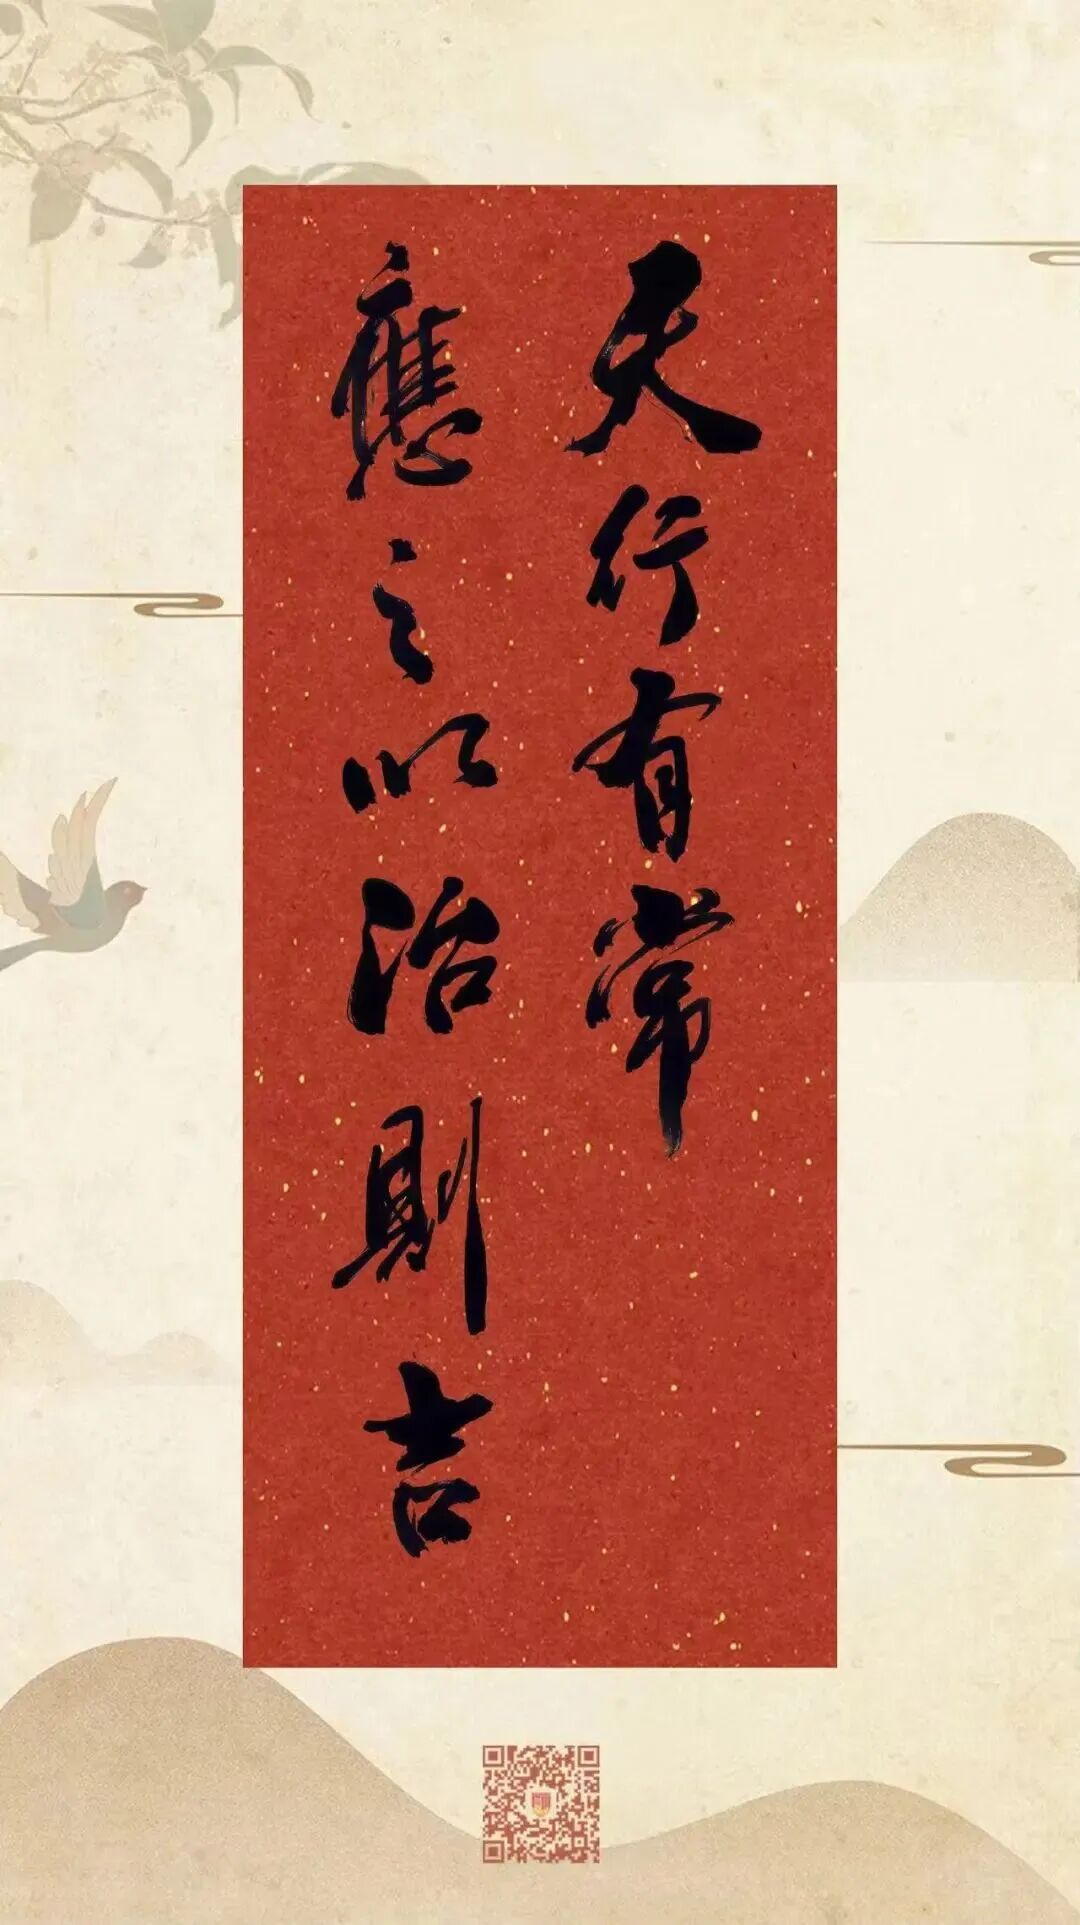 天行有常
應之以治則吉